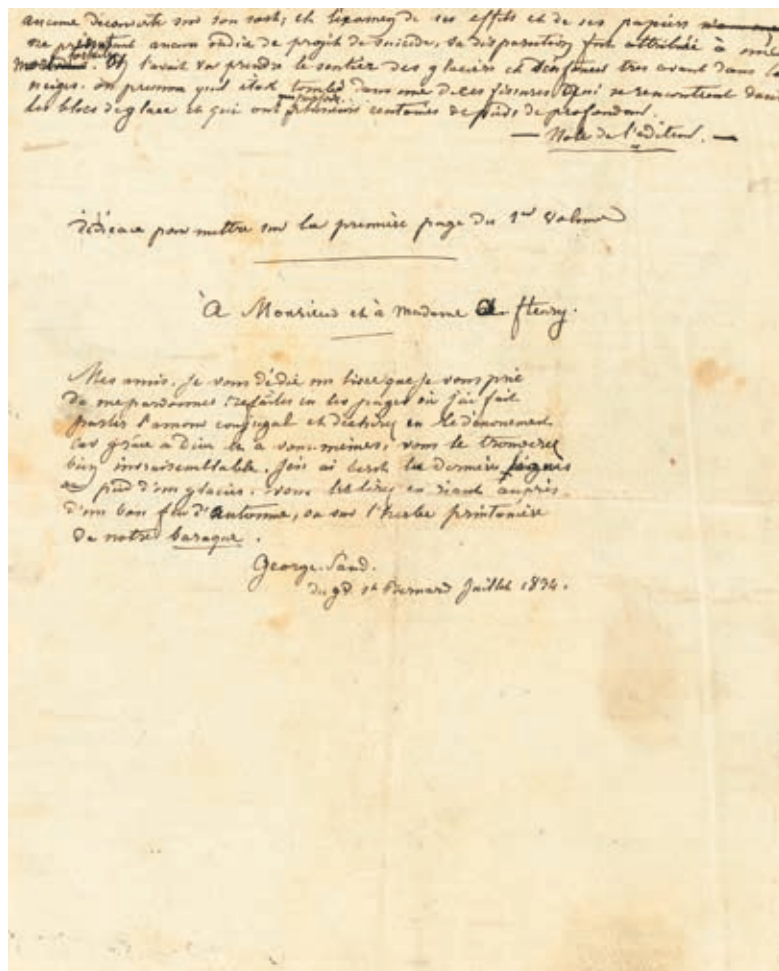 aucune découverte sur son sort; et l'examen de ses effets et de ses papiers
ne présentant aucun indice de projet de suicide, sa disparition fut attribuée à une
fortuit. On l'avait vu prendre le sentier des glaciers et s'enfoncer très avant dans les
neiges. on présuma qu'il était tombé dans une de ces fissures qui se rencontrent dans
les blocs de glace et qui ont parfois plusieurs centaines de pieds de profondeur.
— Note de l'éditeur. —
dédicace pour mettre sur la première page du 1er volume
à Monsieur et à madame fleury.
Mes amis. Je vous dédie un livre que je vous prie
de me pardonner. les pages où j'ai fait
parler l'amour conjugal et déchirez en le dénouement
car grâce à Dieu et à vous-mêmes, vous le trouverez
bien invraisemblable. J'en ai écrit les dernières lignes
au pied d'un glacier. vous les lirez en riant auprès
d'un bon feu d'automne, ou sur l'herbe printanière
de notre baraque.
George Sand.
du gd. St Bernard Juillet 1834.